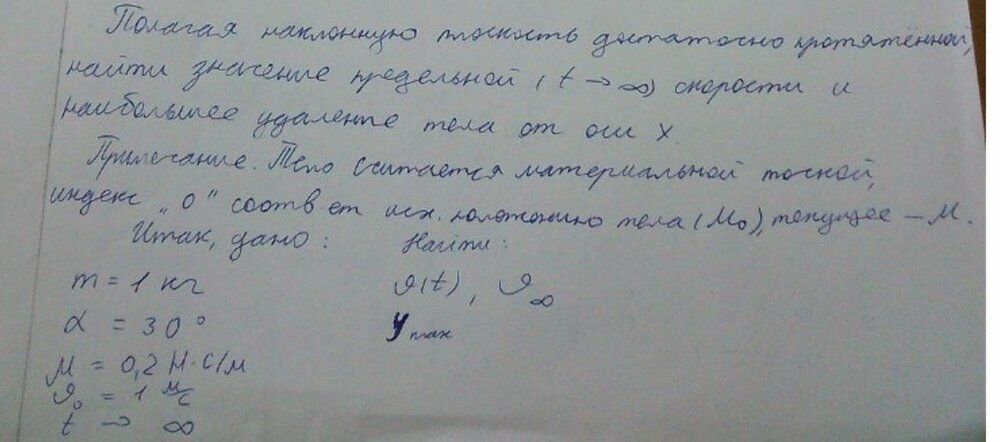 Полагая наклонную плоскость достаточно протяжённой,
найти значение предельной (t → ∞) скорости и
наибольшее удаление тела от оси X.
Примечание. Тело считается материальной точкой,
индекс „0" соотв-ет исх. положению тела (M₀), текущее – M.
Итак, дано: Найти:
m = 1 кг ϑ(t), ϑ∞
α = 30° y max
μ = 0,2 Н·С/м
ϑ₀ = 1 м/с
t → ∞